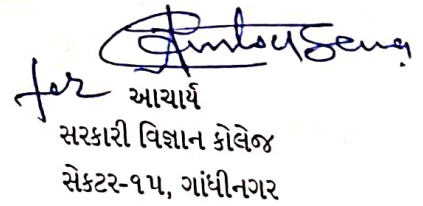 for આચાર્ય
સરકારી વિજ્ઞાન કોલેજ
સેક્ટર-૧૫, ગાંધીનગર